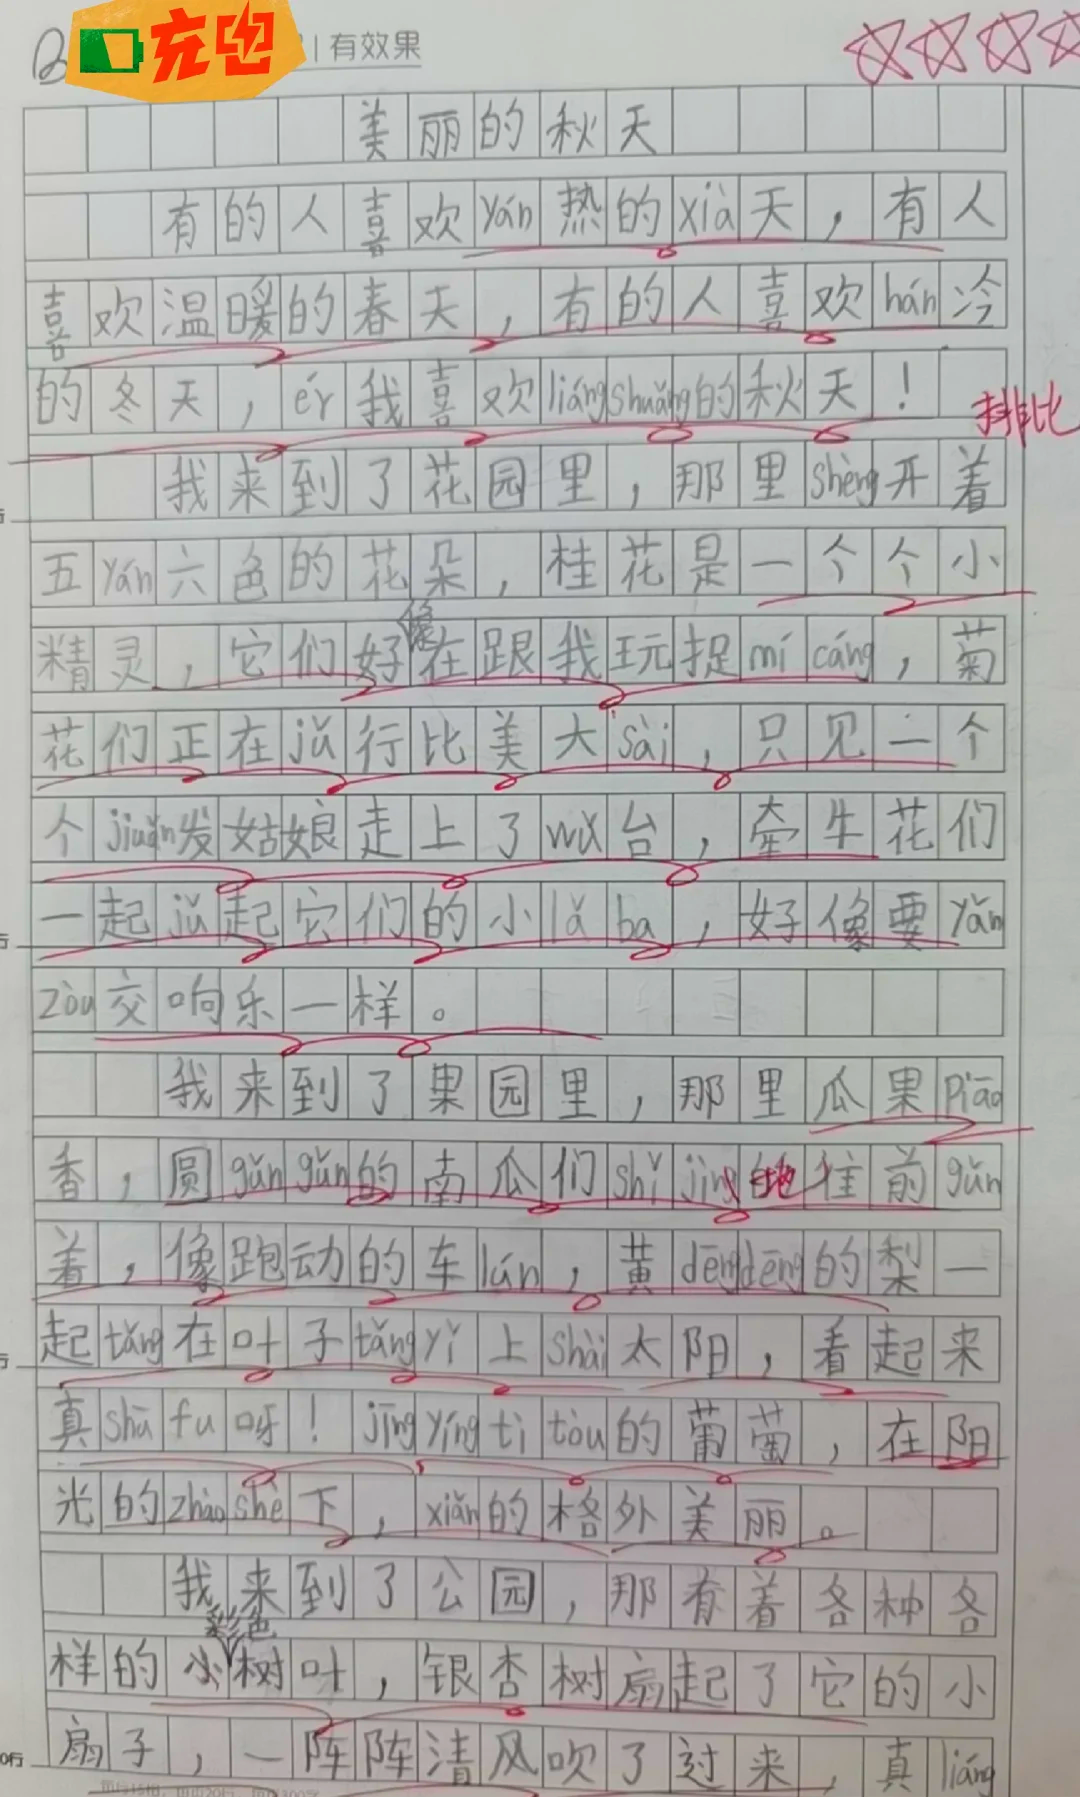 充电
有效果
美丽的秋天
有的人喜欢yán热的xià天，有人
喜欢温暖的春天，有的人喜欢hán冷
的冬天，ér我喜欢liángshuǎng的秋天！
排比
我来到了花园里，那里shèng开着
五yán六色的花朵，桂花是一个个小
精灵，它们好像在跟我玩捉mí cáng，菊
花们正在jǔ行比美大sài，只见一个
个juǎn发姑娘走上了wǔ台，牵牛花们
一起jǔ起它们的小lǎ ba，好像要yǎn
zòu交响乐一样。
我来到了果园里，那里瓜果piāo
香，圆gǔn gǔn的南瓜们shǐ jìng地往前gǔn
着，像跑动的车lún，黄dēngdēng的梨一
起tǎng在叶子tǎng yǐ上shài太阳，看起来
真shū fu呀！jīng yíng tì tòu的葡萄，在阳
光的zhào shè下，xiǎn的格外美丽。
我来到了公园，那有着各种各
样的小彩色树叶，银杏树扇起了它的小
扇子，一阵阵清风吹了过来，真liáng